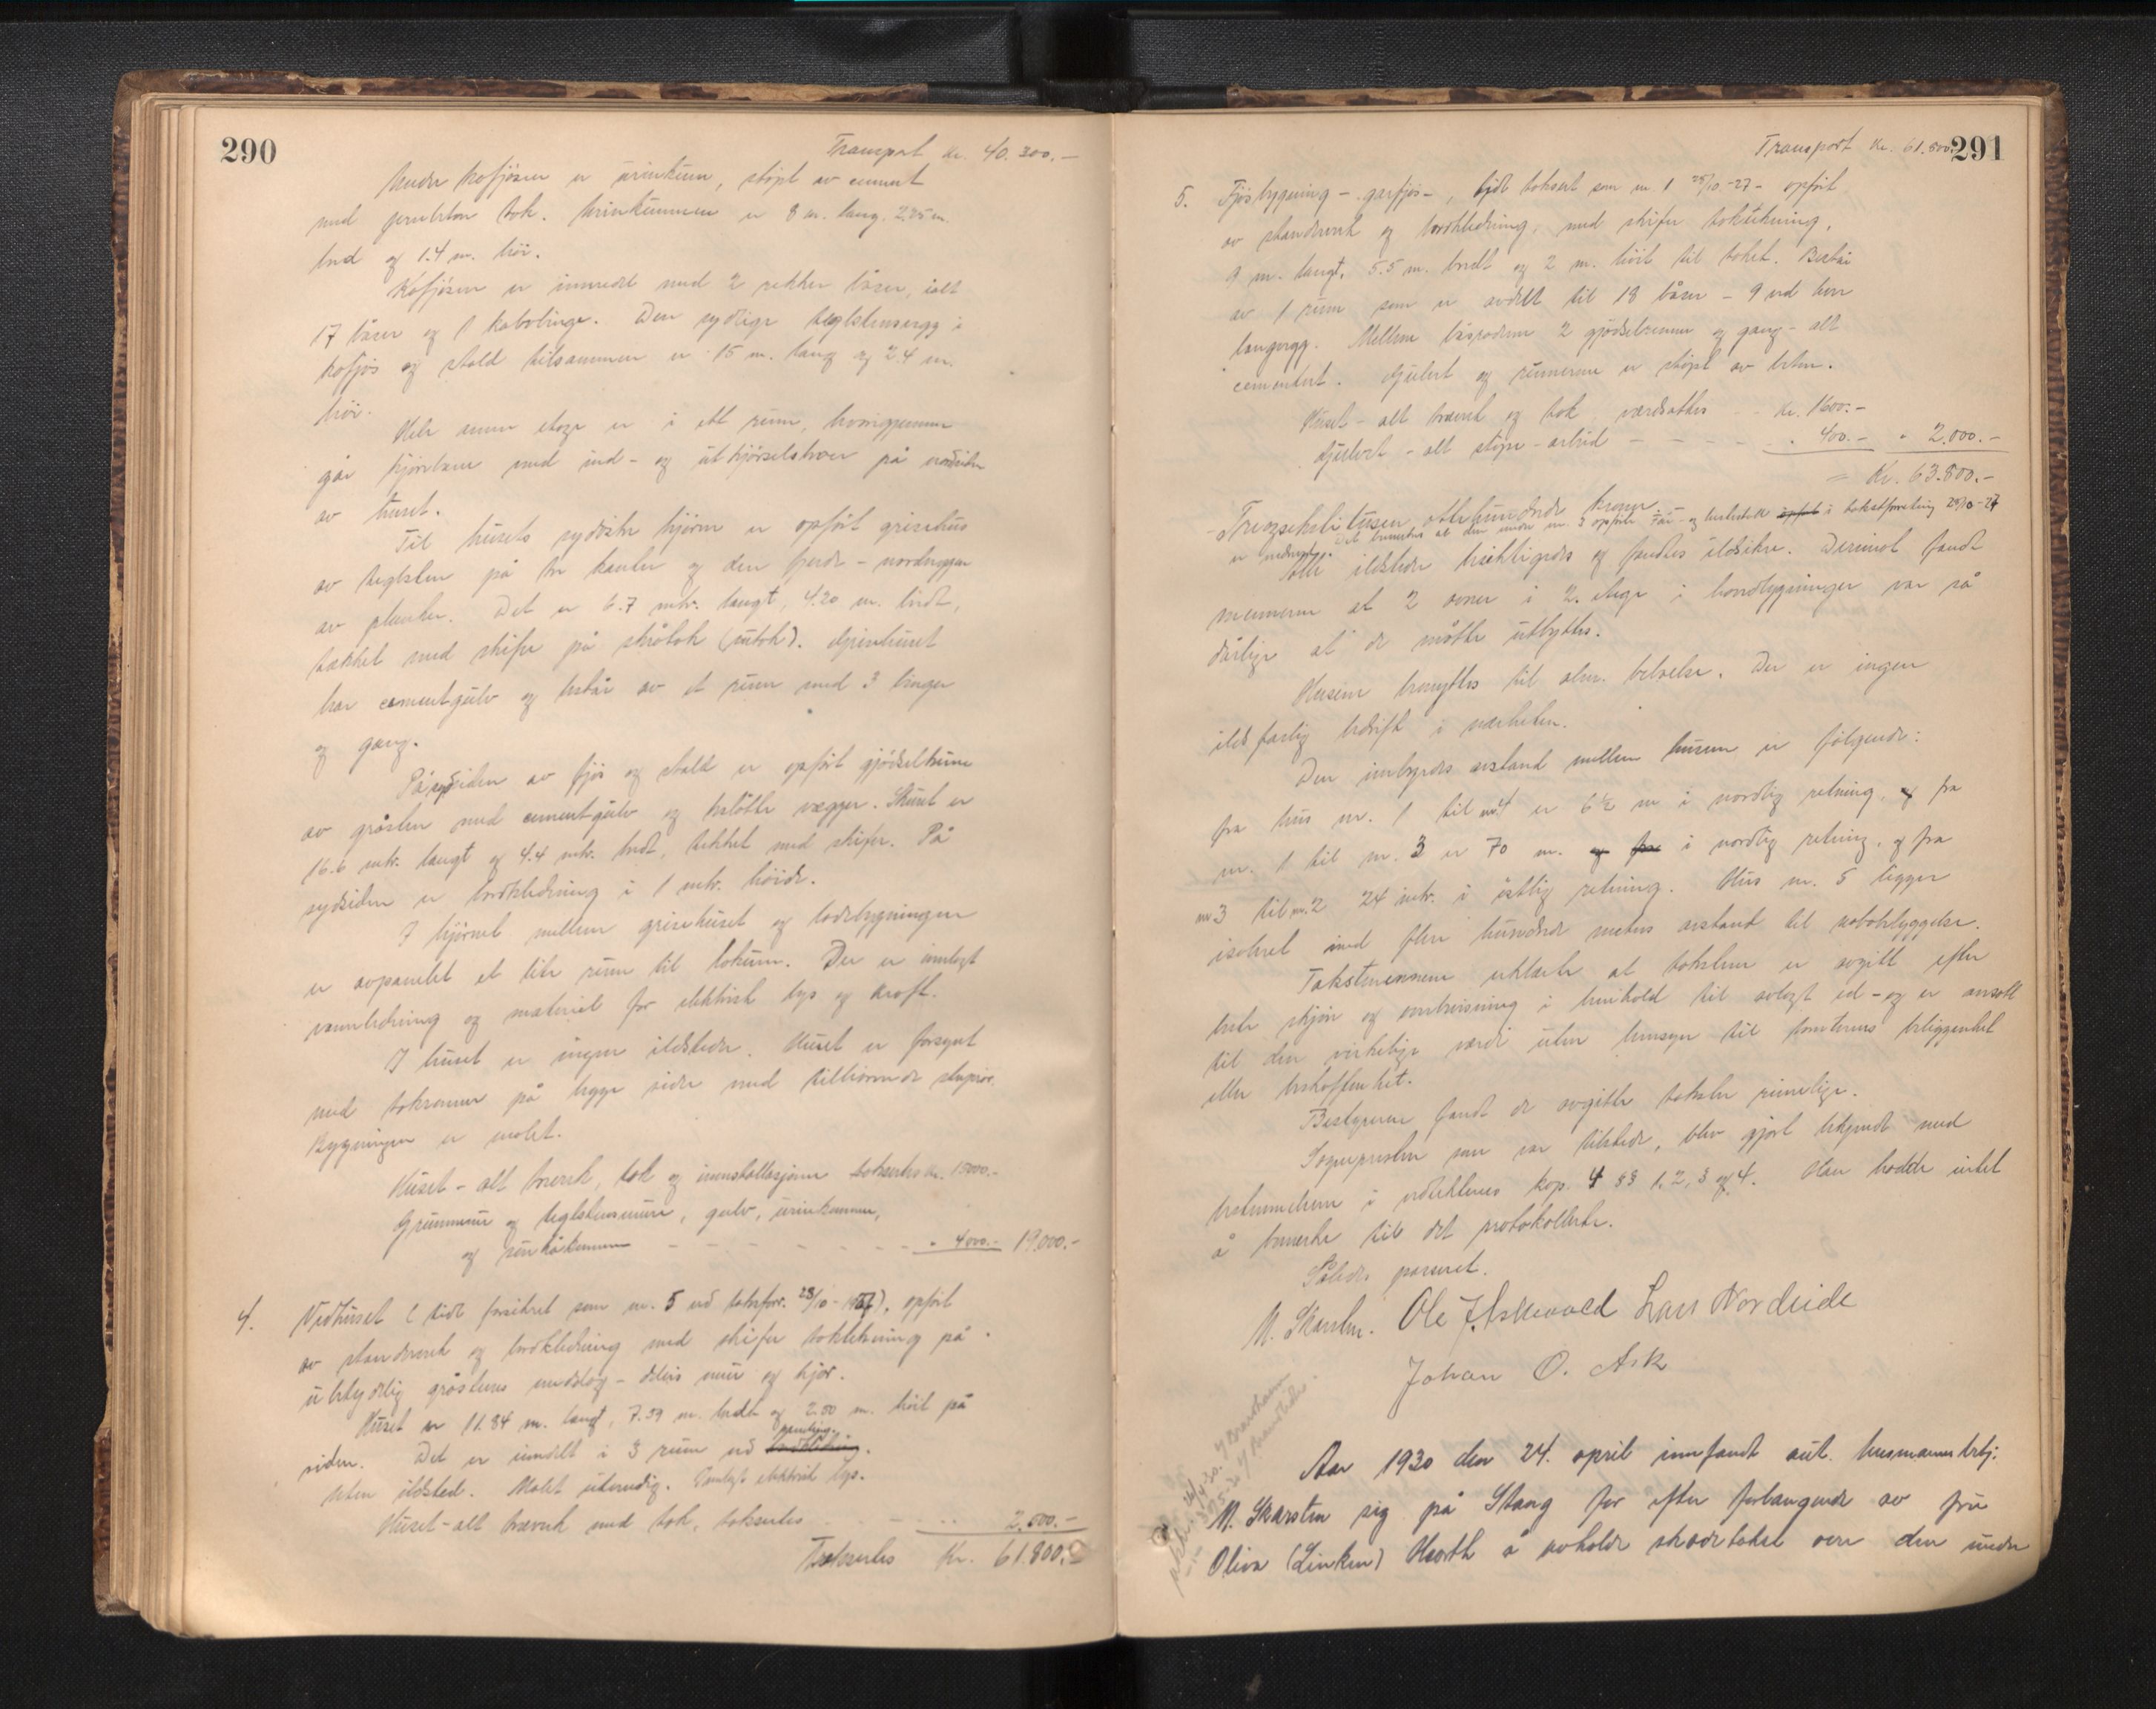 290
Transport Kr. 40.300.-
Under kofjøsen er urinkum, støpt av cement
med jernbeton tak. Urinkummen er 8 m. lang. 2.25 m.
bred og 1.4 m. høi.
Kofjøsen er innredet med 2 rekker båser, ialt
17 båser og 1 kalvbinge. Den sydlige teglstensvegg i
kofjøs og stald tilsammen er 15 m. lang og 2.4 m.
høi.
Hele annen etage er i ett rum, hvorigjennem
går kjørebane med ind- og utkjørselsbroer på nordsiden
av huset.
Til husets sydøstre hjørne er opført grisehus
av teglsten på tre kanter og den fjerde - nordveggen
av planker. Det er 6.7 mtr. langt, 4.20 m. bredt,
tækket med skifer på skråtak (sutak). Grisehuset
har cementgulv og består av et rum med 3 binger
og gang.
På sydsiden av fjøs og stald er opført gjødselkume
av gråsten med cementgulv og beslåtte vægger. Skuret er
16.6 mtr. langt og 4.4 mtr. bredt, tekket med skifer. På
sydsiden er bordklædning i 1 mtr. høide.
I hjørnet mellem grisehuset og ladebygningen
er avpanelet et lite rum til lokum. Der er innlagt
vannledning og materiel for elektrisk lys og kraft.
I huset er ingen ildsteder. Huset er forsynt
med takrenner på begge sider med tilhørende
Bygningen er malet.
Huset - alt træverk, tak og innstallasjoner takseres kr. 15000.-
Grunnmur og teglstensmure, gulv, urinkummen,
og - - - - - - " 4000.- 19.000.-
4. Vedhuset (sidst forsikret som nr. 5 ved takstforr. 28/10-1927), opført
av stenderverk og bordklædning med skifer taktekning på
ubetydelig gråstens underlag - delvis mur og kjør.
Huset er 11.84 m. langt, 7.59 m. bredt og 2.50 m. høit på
siden. Det er inndelt i 3 rum ved bordklædning.
Uten ildsted. Malet utvendig. Innlagt elektrisk lys.
Huset - alt træverk med tak, takseres - - - 2.500.-
Takseres Kr. 61.800.-
291
Transport Kr. 61.800.-
5. Fjøsbygning - garfjøs -, sidst taksert som nr. 1 28/10-27 - opført
av stenderverk og bordklædning, med skifer taktekning,
9 m. langt, 5.5 m. bredt og 2 m. høit til taket. Består
av 1 rum som er avdelt til 18 båser - 9 ved hver
langvegg. Mellem båsradene 2 gjødselrenner og gang - alt
cementert. Gulvet og rennerne er støpt av beton.
Huset - alt træverk og tak værdsættes - kr. 1600.-
Gulvet - alt støpe - arbeid - - - - " 400.- " 2.000.-
= Kr. 63.800.-
- Treogsekstitusen ottehundrede kroner -
Det bemerkes at den under nr. 3 opførte får- og hestestald i takstforretning 28/10-27
er nedrevet.
Alle ildsteder besiktigedes og fandtes ildsikre. Derimot fandt
mennene at 2 ovner i 2. etage i hovedbygningen var så
dårlige at de måtte utbyttes.
Husene benyttes til alm. beboelse. Der er ingen
ildsfarlig bedrift i nærheten.
Den innbyrdes avstand mellem husene er følgende:
fra hus nr. 1 til nr 4 er 6 1/2 m i nordlig retning, og fra
nr. 1 til nr. 3 er 70 m. og fra i nordlig retning, og fra
nr 3 til nr. 2 24 mtr. i østlig retning. Hus nr. 5 ligger
isoleret med flere hundrede meters avstand til nabobebyggelse.
Takstmennene erklærte at takstene er avgitt efter
beste skjøn og overbevisning i henhold til avlagt ed - og er ansatt
til den virkelige værdi uten hensyn til tomternes beliggenhet
eller beskaffenhet.
Bestyreren fandt de avgitte takster rimelige.
Sognepresten som var tilstede, blev gjort bekjendt med
bestemmelserne i vedtektenes kap. 4 §§ 1, 2, 3 og 4. Han hadde intet
å bemerke til det protokollerte.
Således passeret.
N. Skarsten. Ole J. Askevold Lars Nordeide
Johan O. Ask
Aar 1930 den 24. april innfandt aut. husmannsbetj.
N. Skarsten sig på Stang for efter forlangende av fru
Oliva (Linken) Heorth å avholde skadetakst over den under